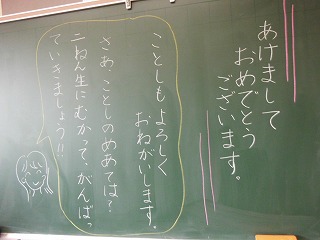 あけまして
おめでとう
ございます。
ことしもよろしく
おねがいします。
さあ、ことしのめあては?
二ねん生にむかって、がんばっ
ていきましょう!!